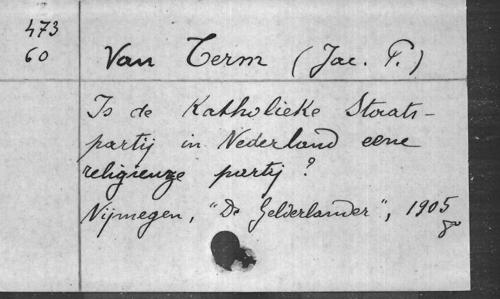 473
60
Van Term (Jac. P.)
Is de Katholieke Staats-
partij in Nederland eene
religieuze partij?
Nijmegen, "De Gelderlander", 1905
8º